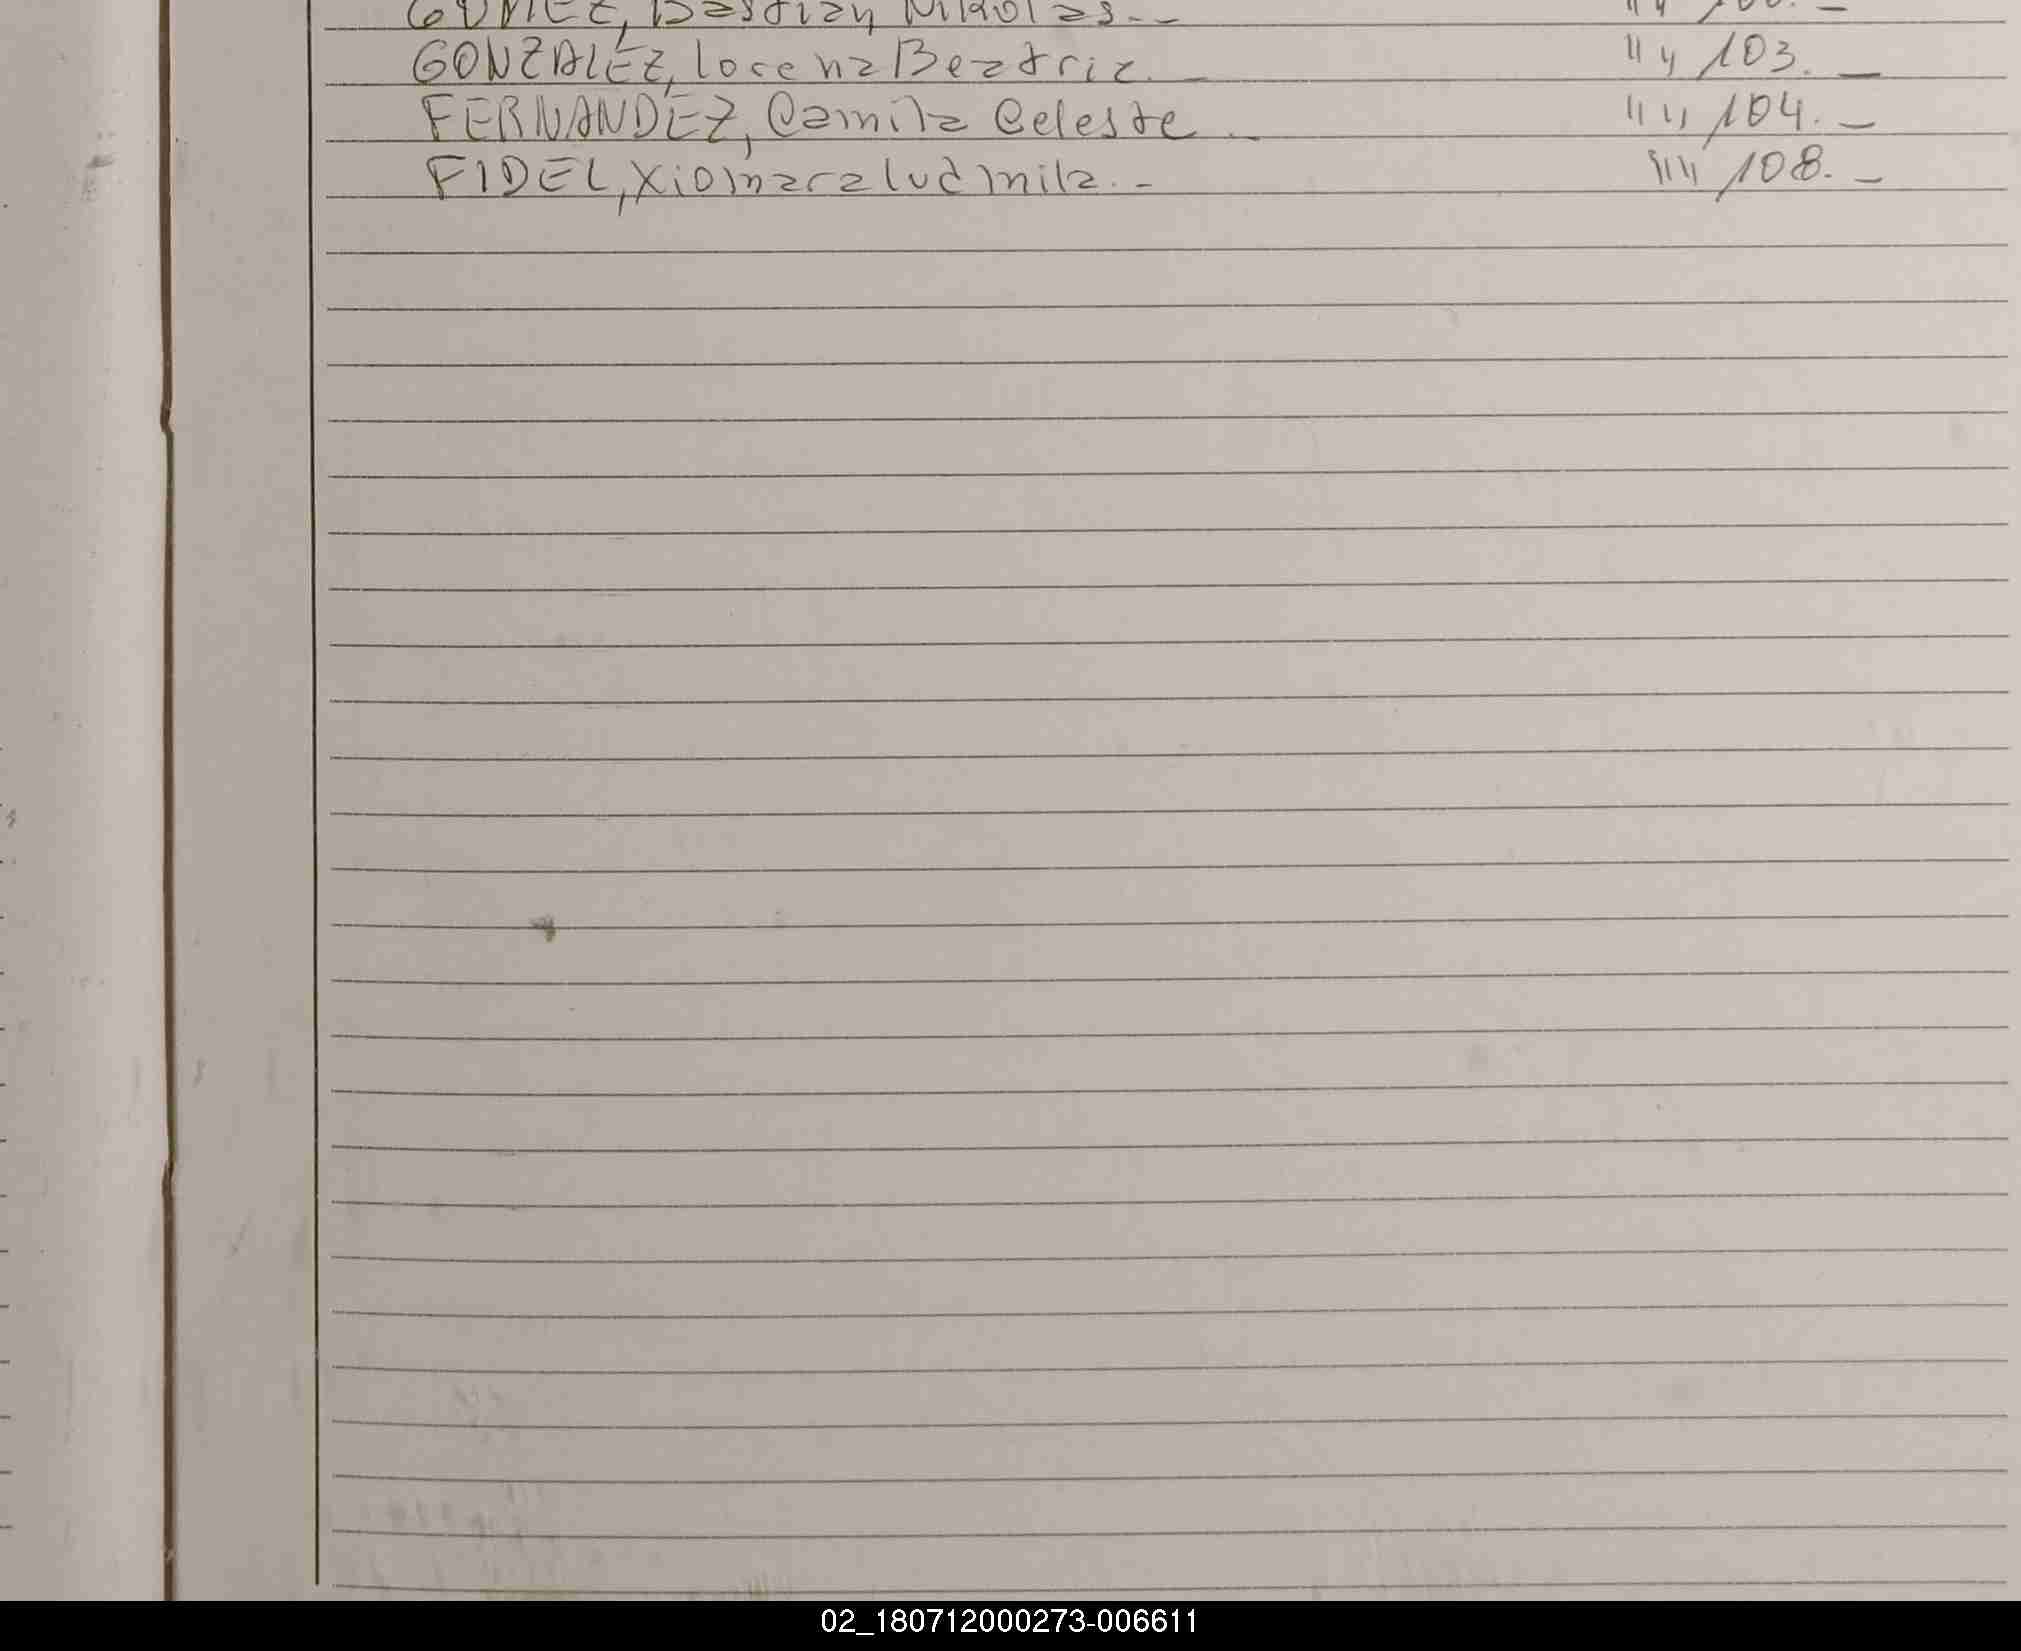 GOMEZ, Bastian Nikolas.-
GONZALEZ, Lorena Beatriz.- " " 103.-
FERNANDEZ, Camila Celeste.- " " 104.-
FIDEL, Xiomara Ludmila.- " " 108.-
02_180712000273-006611